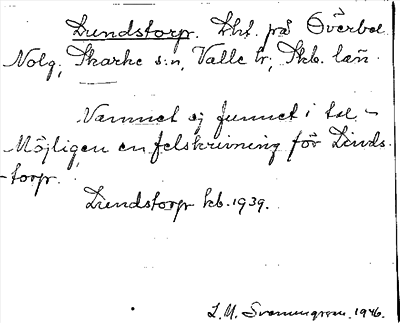 Lundstorp. Lht. på Överbol
Nolg., Skarke s:n, Valle hr; Skb. län.
Namnet ej funnet i tal. –
Möjligen en felskrivning för Linds-
-torp.
Lundstorp kb. 1939.
L. M. Svanungren. 1946.